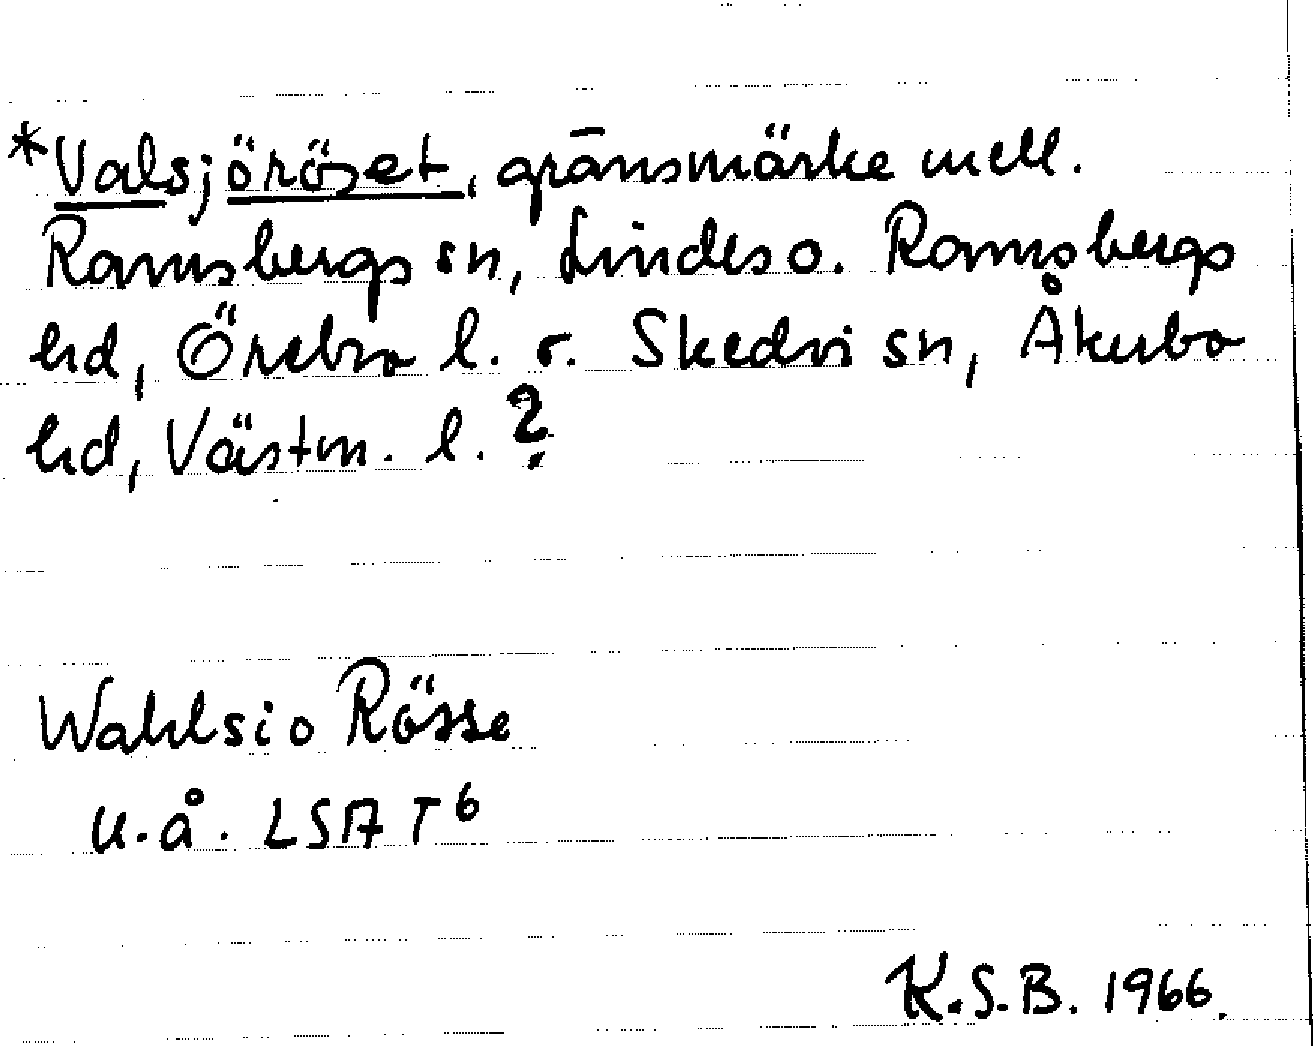 *Valsjöröset, gränsmärke mell.
Ramsbergs sn, Lindes o. Ramsbergs
hd, Örebro l. o. Skedvi sn, Åkerbo
hd, Västm. l.?
Wahlsio Rösse
u.å. LSA T6
K.S.B. 1966.